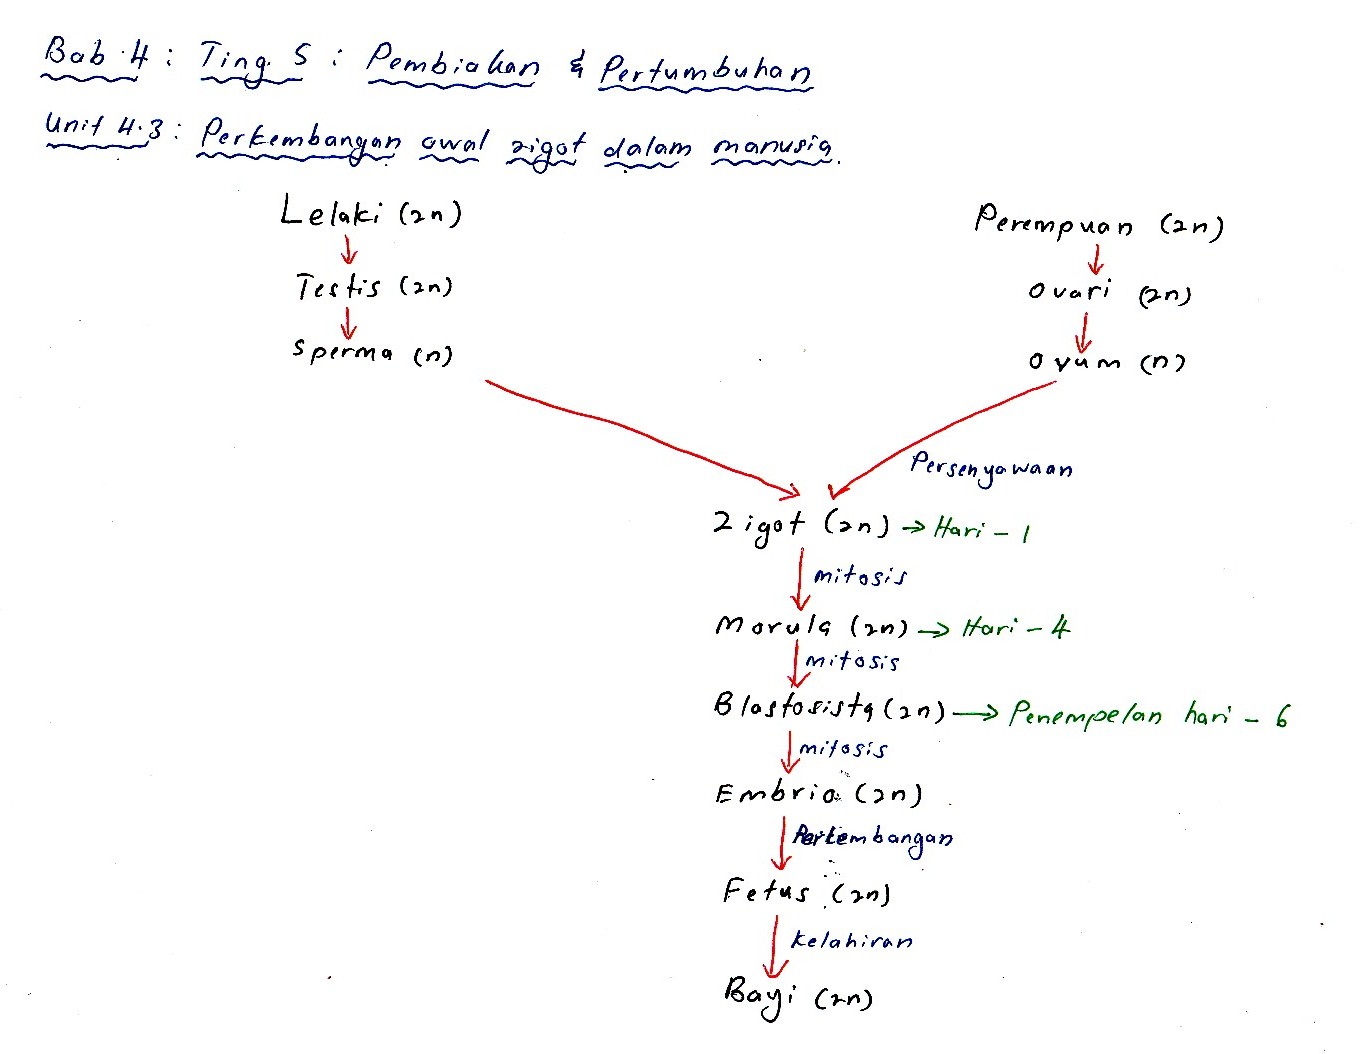 Bab 4 : Ting. 5 : Pembiakan & Pertumbuhan
Unit 4.3 : Perkembangan awal zigot dalam manusia.
Lelaki (2n)
Testis (2n)
Sperma (n)
Perempuan (2n)
Ovari (2n)
Ovum (n)
Persenyawaan
Zigot (2n) → Hari - 1
mitosis
Morula (2n) → Hari - 4
mitosis
Blastosista (2n) → Penempelan hari - 6
mitosis
Embrio (2n)
Perkembangan
Fetus (2n)
Kelahiran
Bayi (2n)